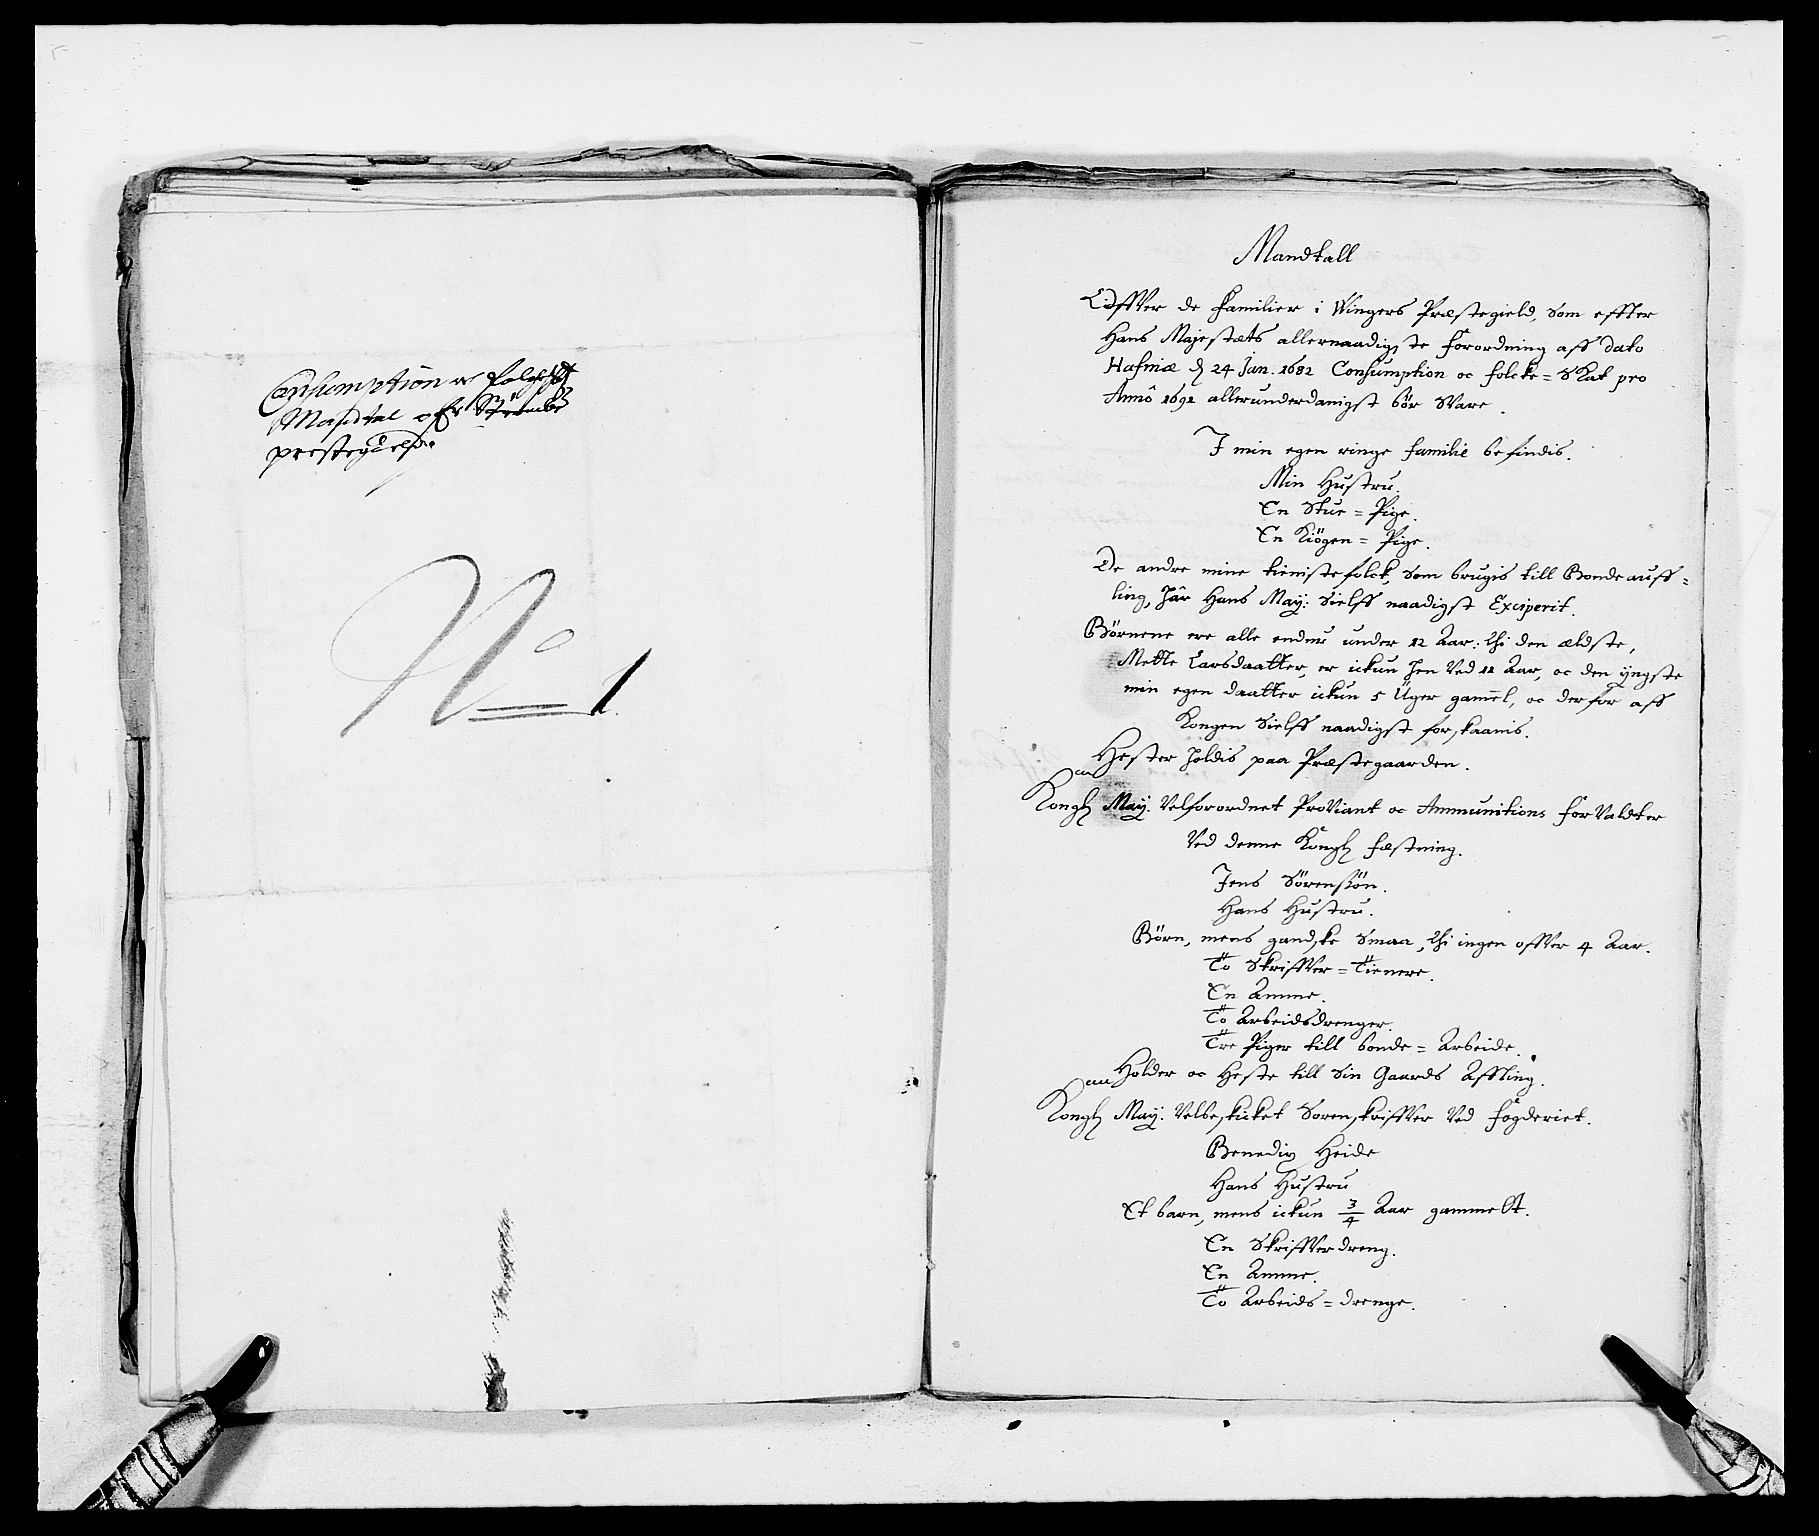 Consumption oc folche
Mandtal ofver Strømbs
prestegield

No 1

Mandtall
Offver de Familier i Wingers Præstegield, som effter
Hans Majestæts allernaadigste Forordning aff dato
Hafniæ d. 24 Jan. 1682 Consumption oc folcke=Skat pro
Anno 1691 allerunderdanigst bør svare.
I min egen ringe familie befindis.
Min Hustru.
En Stue=Pige.
En Kiøgen=Pige.
De andre mine tienistefolck, som brugis till Bonde auff=
ling, har Hans May: Sielff naadigst Exciperit.
Børnene ere alle endnu under 12 Aar: thi den ældste,
Mette Larsdaatter, er ickun hen ved 11 Aar, oc den yngste
min egen daatter ickun 5 Uger gamel, oc derfor aff
Kongen Sielff naadigst forskaanis.
Hester holdis paa Præstegaarden.
Kongl May. Velforordnet Proviant oc Ammunitions Forvaldter
Ved denne Kongl Fæstning.
Jens Sørensøn.
Hans Hustru.
Børn, mens gandske Smaa, thi ingen offver 4 Aar.
To Skriffver=Tienere.
En Amme.
To Arbeidsdrenger.
Tre Piger till bonde=Arbeide.
Holder oc Heste till Sin Gaards Affling.
Kongl May. Velbeskicket Sorenskriffver Ved Fogderiet.
Benedix Heide
Hans Hustru
Et barn, mens ickun 3/4 Aar gammelt.
En Skriffverdreng.
En Amme.
To Arbeids=drenge.